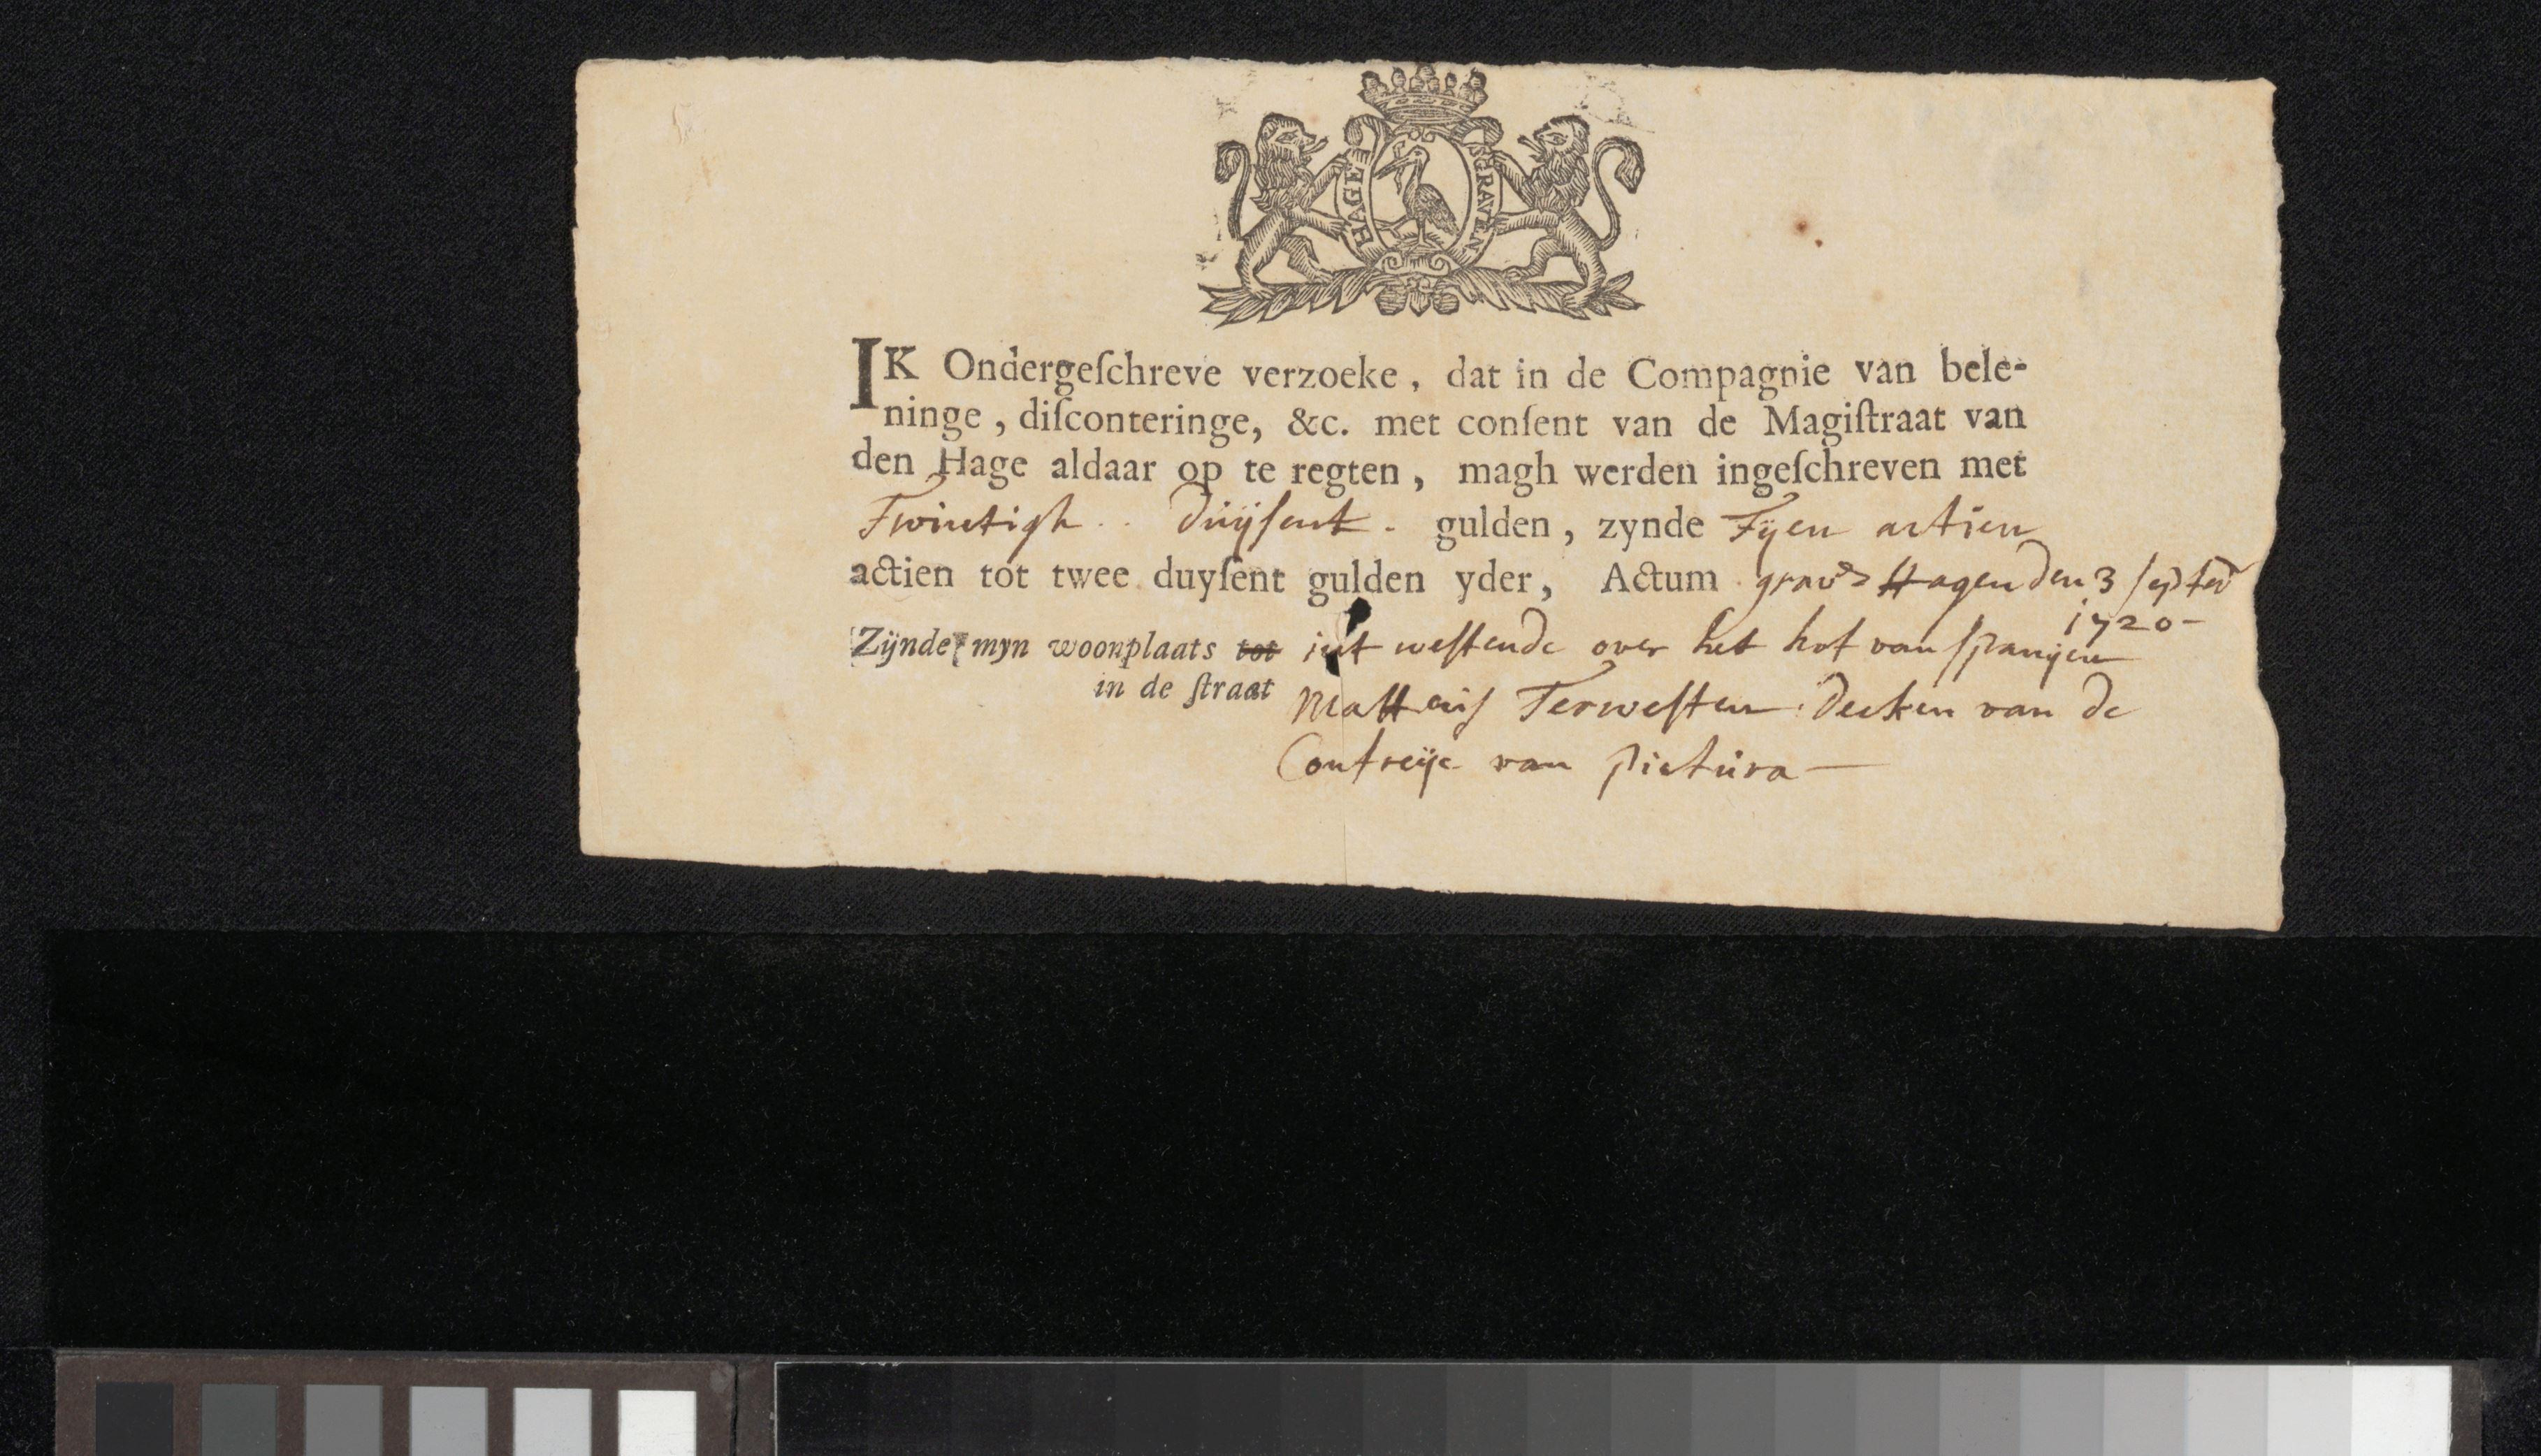 HAGE SGRAVEN
IK Ondergeſchreve verzoeke, dat in de Compagnie van bele-
ninge, diſconteringe, &c. met conſent van de Magiſtraat van
den Hage aldaar op te regten, magh werden ingeſchreven met
Twintigh duijsent gulden, zynde Tijen actien
actien tot twee duyſent gulden yder, Actum grav Hagen den 3 septer
1720-
Zijnde myn woonplaats tot int westende over het hof van spanijen
in de ſtraat Mattheis Terwesten Decken van de
Confreije van pictura